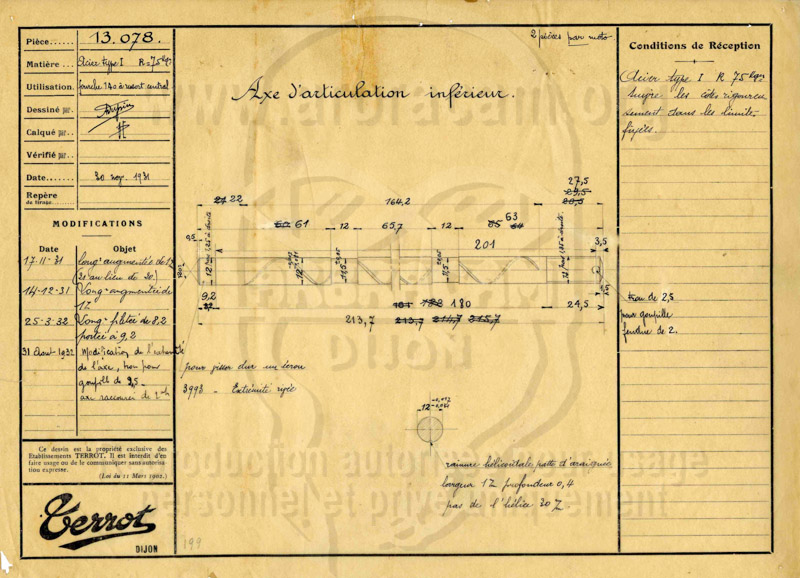 Pièce...... 13.078.
Matière... Acier type I R=75 kgs
Utilisation. fourche 140 à ressort central
Dessiné par..
Calqué par..
Vérifié par..
Date...... 30 1931
Repère
de tirage
MODIFICATIONS
Date Objet
17-11-31 Long augmentée de 1
au lieu de 20.)
14-12-31 Long augmentée de
25-3-32 Long filetée de 8,2
portée à 9,2
31 Août 1932 Modification de l'extrémité
de l'axe, trou pour
goupille de 2,5
axe raccourci de
Ce dessin est la propriété exclusive des
Etablissements TERROT. Il est interdit d'en
faire usage ou de le communiquer sans autorisa-
tion expresse.
(Loi du 11 Mars 1902.)
Terrot
DIJON
2 pièces par moto.
Axe d'articulation inférieur.
27,5
29,5
28,5
21 22 164,2
60 61 12 65,7 12 65 64 63
201
3,5
12
11,5
11,5
9,2
181 182 180 24,5
213,7 213,7 214,7 215,7
trou de 2,5
pour goupille
fendue de 2.
pour visser sur un écrou
3993 - Extrémité rivée
12
rainure hélicoïdale patte d'araignée
largeur profondeur 0,4
pas de l'hélice 30
199
Conditions de Réception
Acier type I R 75 kgs
les côtes rigoureu
sement dans les limites
fixées.
production autorisée pour usage
personnel et privé seulement